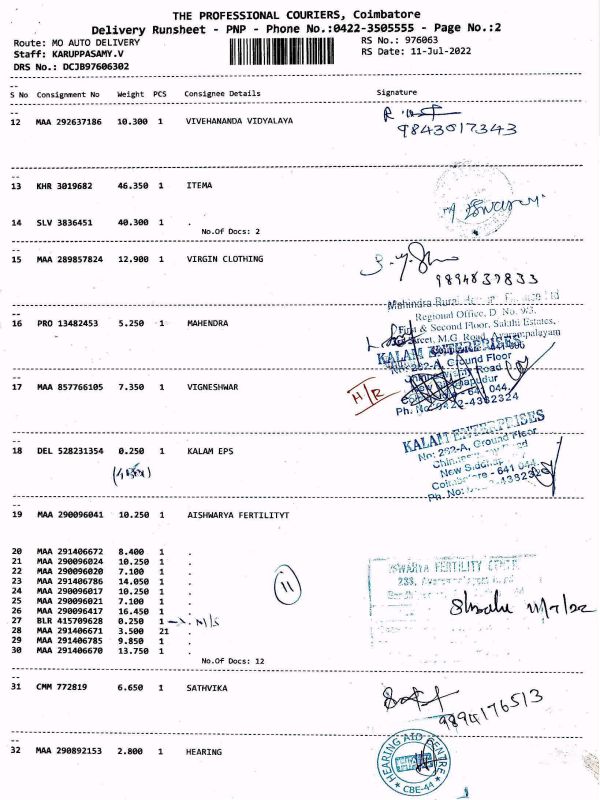 THE PROFESSIONAL COURIERS, Coimbatore
Delivery Runsheet - PNP - Phone No.:0422-3505555 - Page No.:2
Route: MO AUTO DELIVERY RS No.: 976063
Staff: KARUPPASAMY.V RS Date: 11-Jul-2022
DRS No.: DCJB97606302
S No Consignment No Weight PCS Consignee Details Signature
12 MAA 292637186 10.300 1 VIVEHANANDA VIDYALAYA
9843017343
13 KHR 3019682 46.350 1 ITEMA
14 SLV 3836451 40.300 1 .
No.Of Docs: 2
15 MAA 289857824 12.900 1 VIRGIN CLOTHING
9894837833
Regional Office, D No. 9/3,
First & Second Floor, Sakthi Estates,
Street, M.G. Road, Avarampalayam
16 PRO 13482453 5.250 1 MAHENDRA
KALAM ENTERPRISES
No: 282-A, Ground Floor
17 MAA 857766105 7.350 1 VIGNESHWAR
H/R
Ph. No: 0422-4382324
KALAM ENTERPRISES
No: 282-A, Ground Floor
18 DEL 528231354 0.250 1 KALAM EPS
New Siddhapudur
Coimbatore - 641 044.
Ph. No:
19 MAA 290096041 10.250 1 AISHWARYA FERTILITYT
20 MAA 291406672 8.400 1 .
21 MAA 290096024 10.250 1 .
22 MAA 290096020 7.100 1 .
23 MAA 291406786 14.050 1 .
24 MAA 290096017 10.250 1 .
25 MAA 290096021 7.100 1 .
26 MAA 290096417 16.450 1 .
27 BLR 415709628 0.250 1 . M/S
28 MAA 291406671 3.500 21 .
29 MAA 291406785 9.850 1 .
30 MAA 291406670 13.750 1 .
11
No.Of Docs: 12
11/7/22
31 CMM 772819 6.650 1 SATHVIKA
9894176513
32 MAA 290892153 2.800 1 HEARING
HEARING AID CENTRE
CBE-44